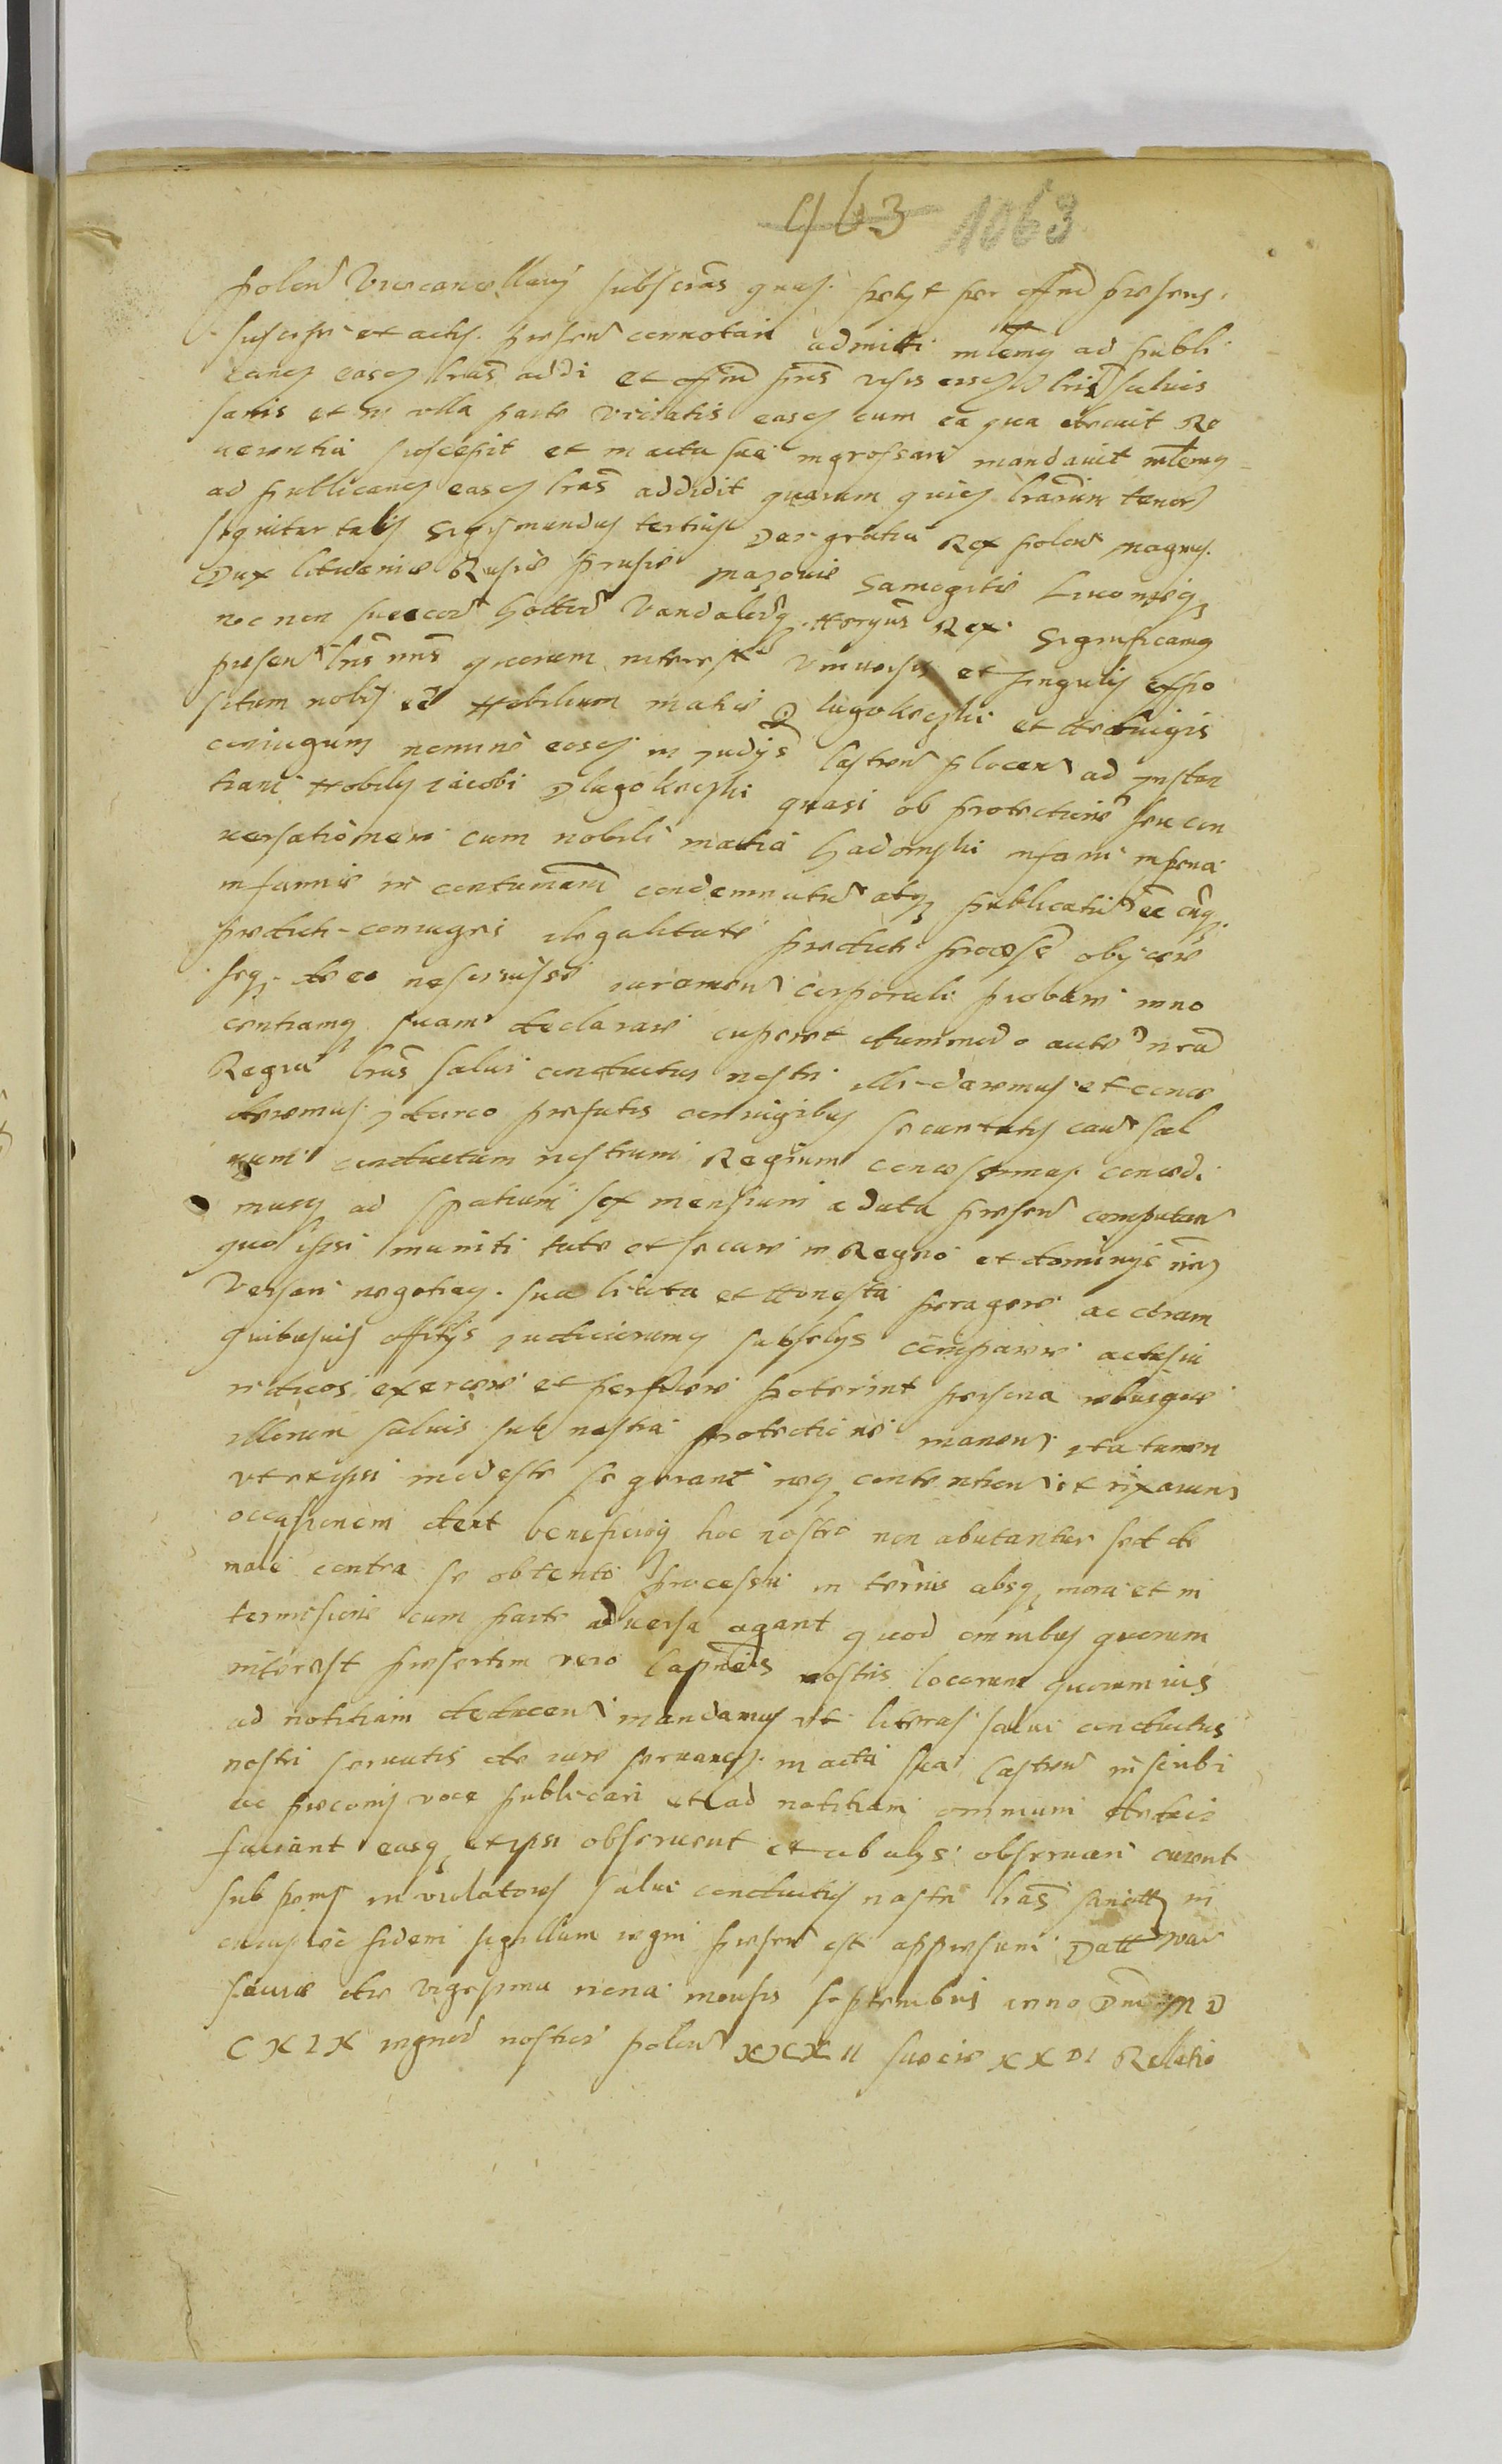 463 1063
Polen Vicecancellarij subscras quas petyt per offm presens
suscipi et actis presen connotari admitti mlemq ad publi
cand easq lras addi et offm pns visis eisq lris saluis
sanis et in vlla parte viciatis easq cum ea qua decuit Re
uerentia suscepit et in acta sua ingrossare mandauit mlemq
ad publicand easq lras addidit quarum quidq lrarum tenor
sequitur talis Sigismundus tertius Dei gratia Rex Polen Magnus
Dux Lituaniæ Rusiæ Prusiæ Mazouiæ Samogitiæ Liuoniæq
nec non Suecor Gottor Vandalorq Hæryus Rex Significamq
presen lris nris quorum interest Vniuersis et singulis expo
situm nobis ee Nobilium Mathiæ Dlugokęczki et Heduigis
coniugum nomine eosq in judys Castren Plocen ad instan
tiam Nobilis Jacobi Dlugokęczki quasi ob protectione seu con
uersationem cum nobili Mathia Gadomski infami in pena
infamiæ in contumam condemnatu atq publicatu ee cuq
predicti coniuges illegalitate predicti processe obijcere
seq de eo nesciuisse iuramen corporali probare inno
centiamq suam declarare cuperet dummodo aucte nra
Regia lras salui conductus nostri illi daremus et conce
deremus Idcirco prefatis coniugibus securitatis caus sal
uum conductum nostrum Regium concessimus concedi
musq ad spatium sex mensium a data presen computan
quo ipsi muniti tute et secure in Regno et dominys nris
Versari negotiaq sua licita et honesta peragere ac coram
quibusuis offitys judiciorumq subselys comparere actusiu
ridicos exercere et perficere poterint persona rebusque
illorum saluis sub nostra protectione manen ita tamen
vt et ipsi modeste se gerant neq contention et rixarum
occasionem dent beneficioq hoc nostro non abutantur sed de
male contra se obtento processu in ternis absq mora et in
termisione cum parte aduersa agant quod omnibus quorum
interest presertim vero Capneis nostris locorum quorumuis
ad notitiam deducen mandamus vt literas salui conductus
nostri seruatis de iure seruand in acta sua Castren inscribi
ac preconis voce publicari et ad notitiam omnium deduci
faciant easq et ipsi obseruent et ab alys obseruari curent
sub penis in violatores salui conductus nostri lras sancitt in
cuius rei fidem sigillum regni presen est appresum Datt War
sauiæ die vigesima nona mensis Septembris anno Dni M D
C X I X regnor nostror Polen XXX II Sueciæ X X VI Relatio